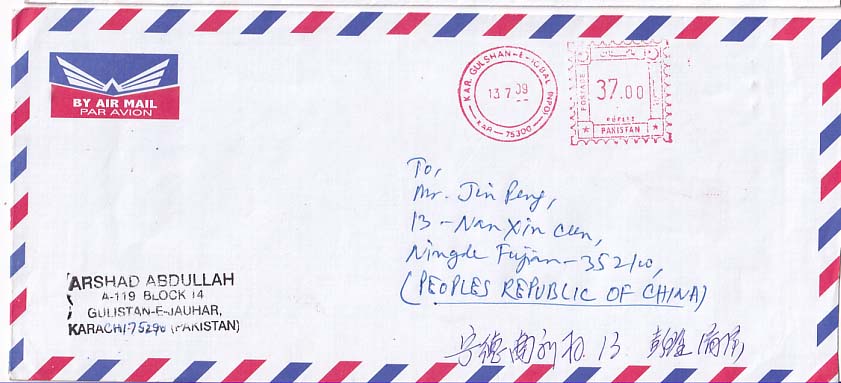 BY AIR MAIL
PAR AVION
KAR. GULSHAN-E-IQBAL (NPO)
13 7 09
KAR - 75300
POSTAGE
37.00
RUPEES
PAKISTAN
To,
Mr. Jin Peng,
13 - Nan Xin Cun,
Ningde Fujian - 352100,
(PEOPLES REPUBLIC OF CHINA)
ARSHAD ABDULLAH
A-119 BLOCK 14
GULISTAN-E-JAUHAR,
KARACHI-75290 (PAKISTAN)
宁德南 13